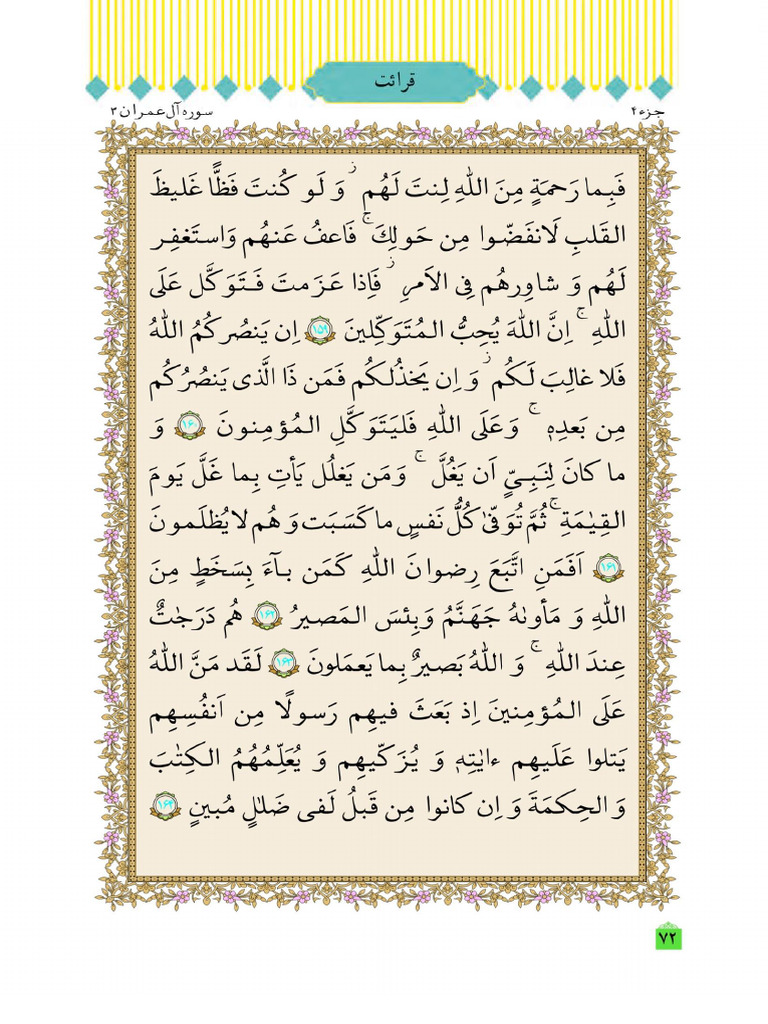 قرائت
جزء ۴
سوره آل عمران ۳
فَبِما رَحمَةٍ مِنَ اللّٰهِ لِنتَ لَهُم ۖ وَ لَو كُنتَ فَظًّا غَليظَ
القَلبِ لَانفَضّوا مِن حَولِكَ ۚ فَاعفُ عَنهُم وَاستَغفِر
لَهُم وَ شاوِرهُم فِى الاَمرِ ۖ فَاِذا عَزَمتَ فَتَوَكَّل عَلَى
اللّٰهِ ۚ اِنَّ اللّٰهَ يُحِبُّ المُتَوَكِّلينَ ۱۵۹ اِن يَنصُركُمُ اللّٰهُ
فَلا غالِبَ لَكُم ۖ وَ اِن يَخذُلكُم فَمَن ذَا الَّذى يَنصُرُكُم
مِن بَعدِهٖ ۚ وَ عَلَى اللّٰهِ فَليَتَوَكَّلِ المُؤمِنونَ ۱۶۰ وَ
ما كانَ لِنَبِىٍّ اَن يَغُلَّ ۚ وَ مَن يَغلُل يَأتِ بِما غَلَّ يَومَ
القِيٰمَةِ ۚ ثُمَّ تُوَفّىٰ كُلُّ نَفسٍ ما كَسَبَت وَ هُم لا يُظلَمونَ
۱۶۱ اَفَمَنِ اتَّبَعَ رِضوانَ اللّٰهِ كَمَن بآءَ بِسَخَطٍ مِنَ
اللّٰهِ وَ مَأوىٰهُ جَهَنَّمُ وَ بِئسَ المَصيرُ ۱۶۲ هُم دَرَجٰتٌ
عِندَ اللّٰهِ ۚ وَ اللّٰهُ بَصيرٌ بِما يَعمَلونَ ۱۶۳ لَقَد مَنَّ اللّٰهُ
عَلَى المُؤمِنينَ اِذ بَعَثَ فيهِم رَسولًا مِن اَنفُسِهِم
يَتلوا عَلَيهِم ءايٰتِهٖ وَ يُزَكّيهِم وَ يُعَلِّمُهُمُ الكِتٰبَ
وَ الحِكمَةَ وَ اِن كانوا مِن قَبلُ لَفى ضَلٰلٍ مُبينٍ ۱۶۴
۷۲